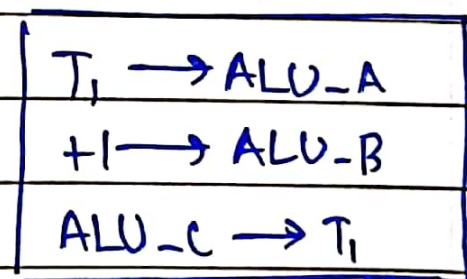 T₁ → ALU_A
+1 → ALU_B
ALU_C → T₁